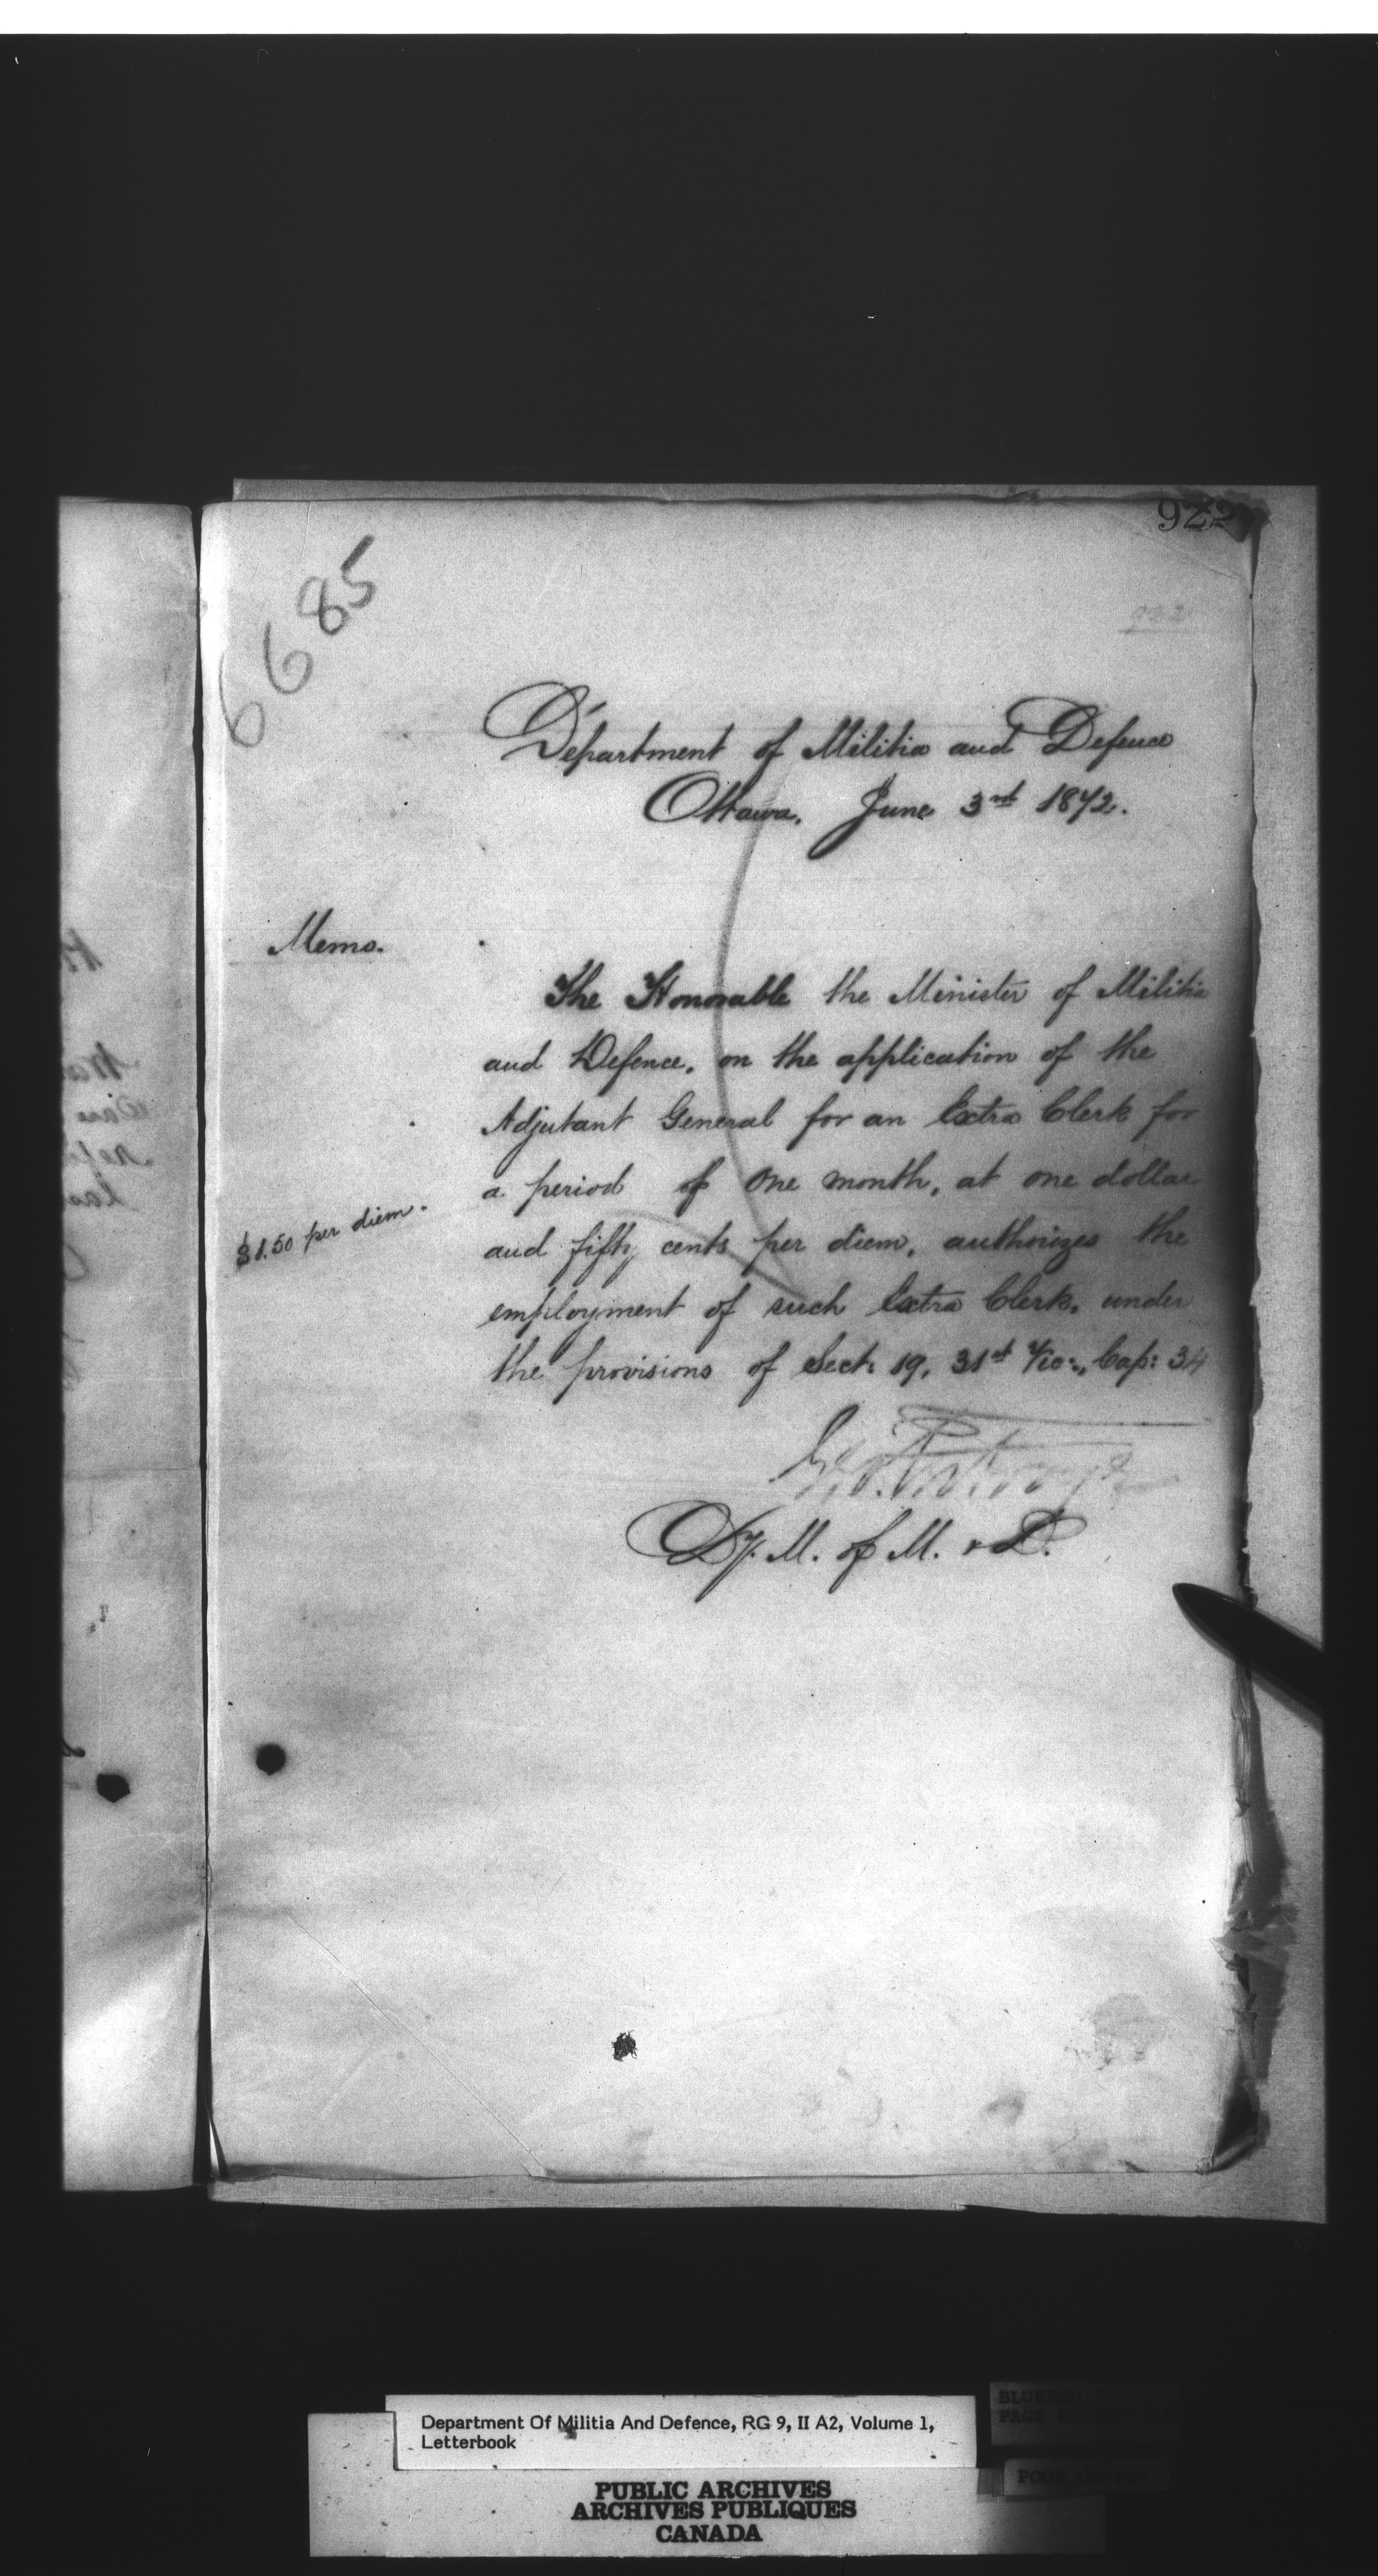 922
6685
Department of Militia and Defence
Ottawa, June 3rd 1872.
Memo.
The Honorable the Minister of Militia
and Defence, on the application of the
Adjutant General for an Extra Clerk for
a period of one month, at one dollar
$1.50 per diem.
and fifty cents per diem, authorizes the
employment of such Extra Clerk, under
the provisions of Sect: 19, 31st Vic:, Cap: 34
Dy. M. of M. & D.
Department Of Militia And Defence, RG 9, II A2, Volume 1,
Letterbook
PUBLIC ARCHIVES
ARCHIVES PUBLIQUES
CANADA